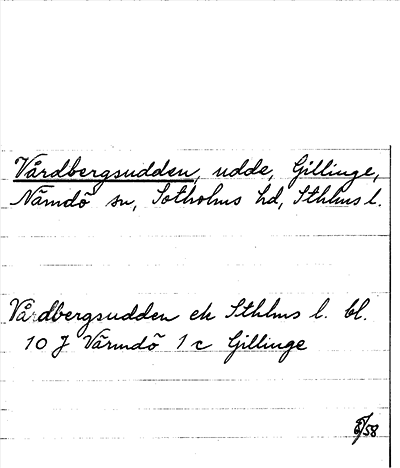 Vårdbergsudden, udde, Gillinge,
Nämdö sn, Sotholms hd, Sthlms l.
Vårdbergsudden ek Sthlms l. bl.
10 J Värmdö 1 c Gillinge
/58